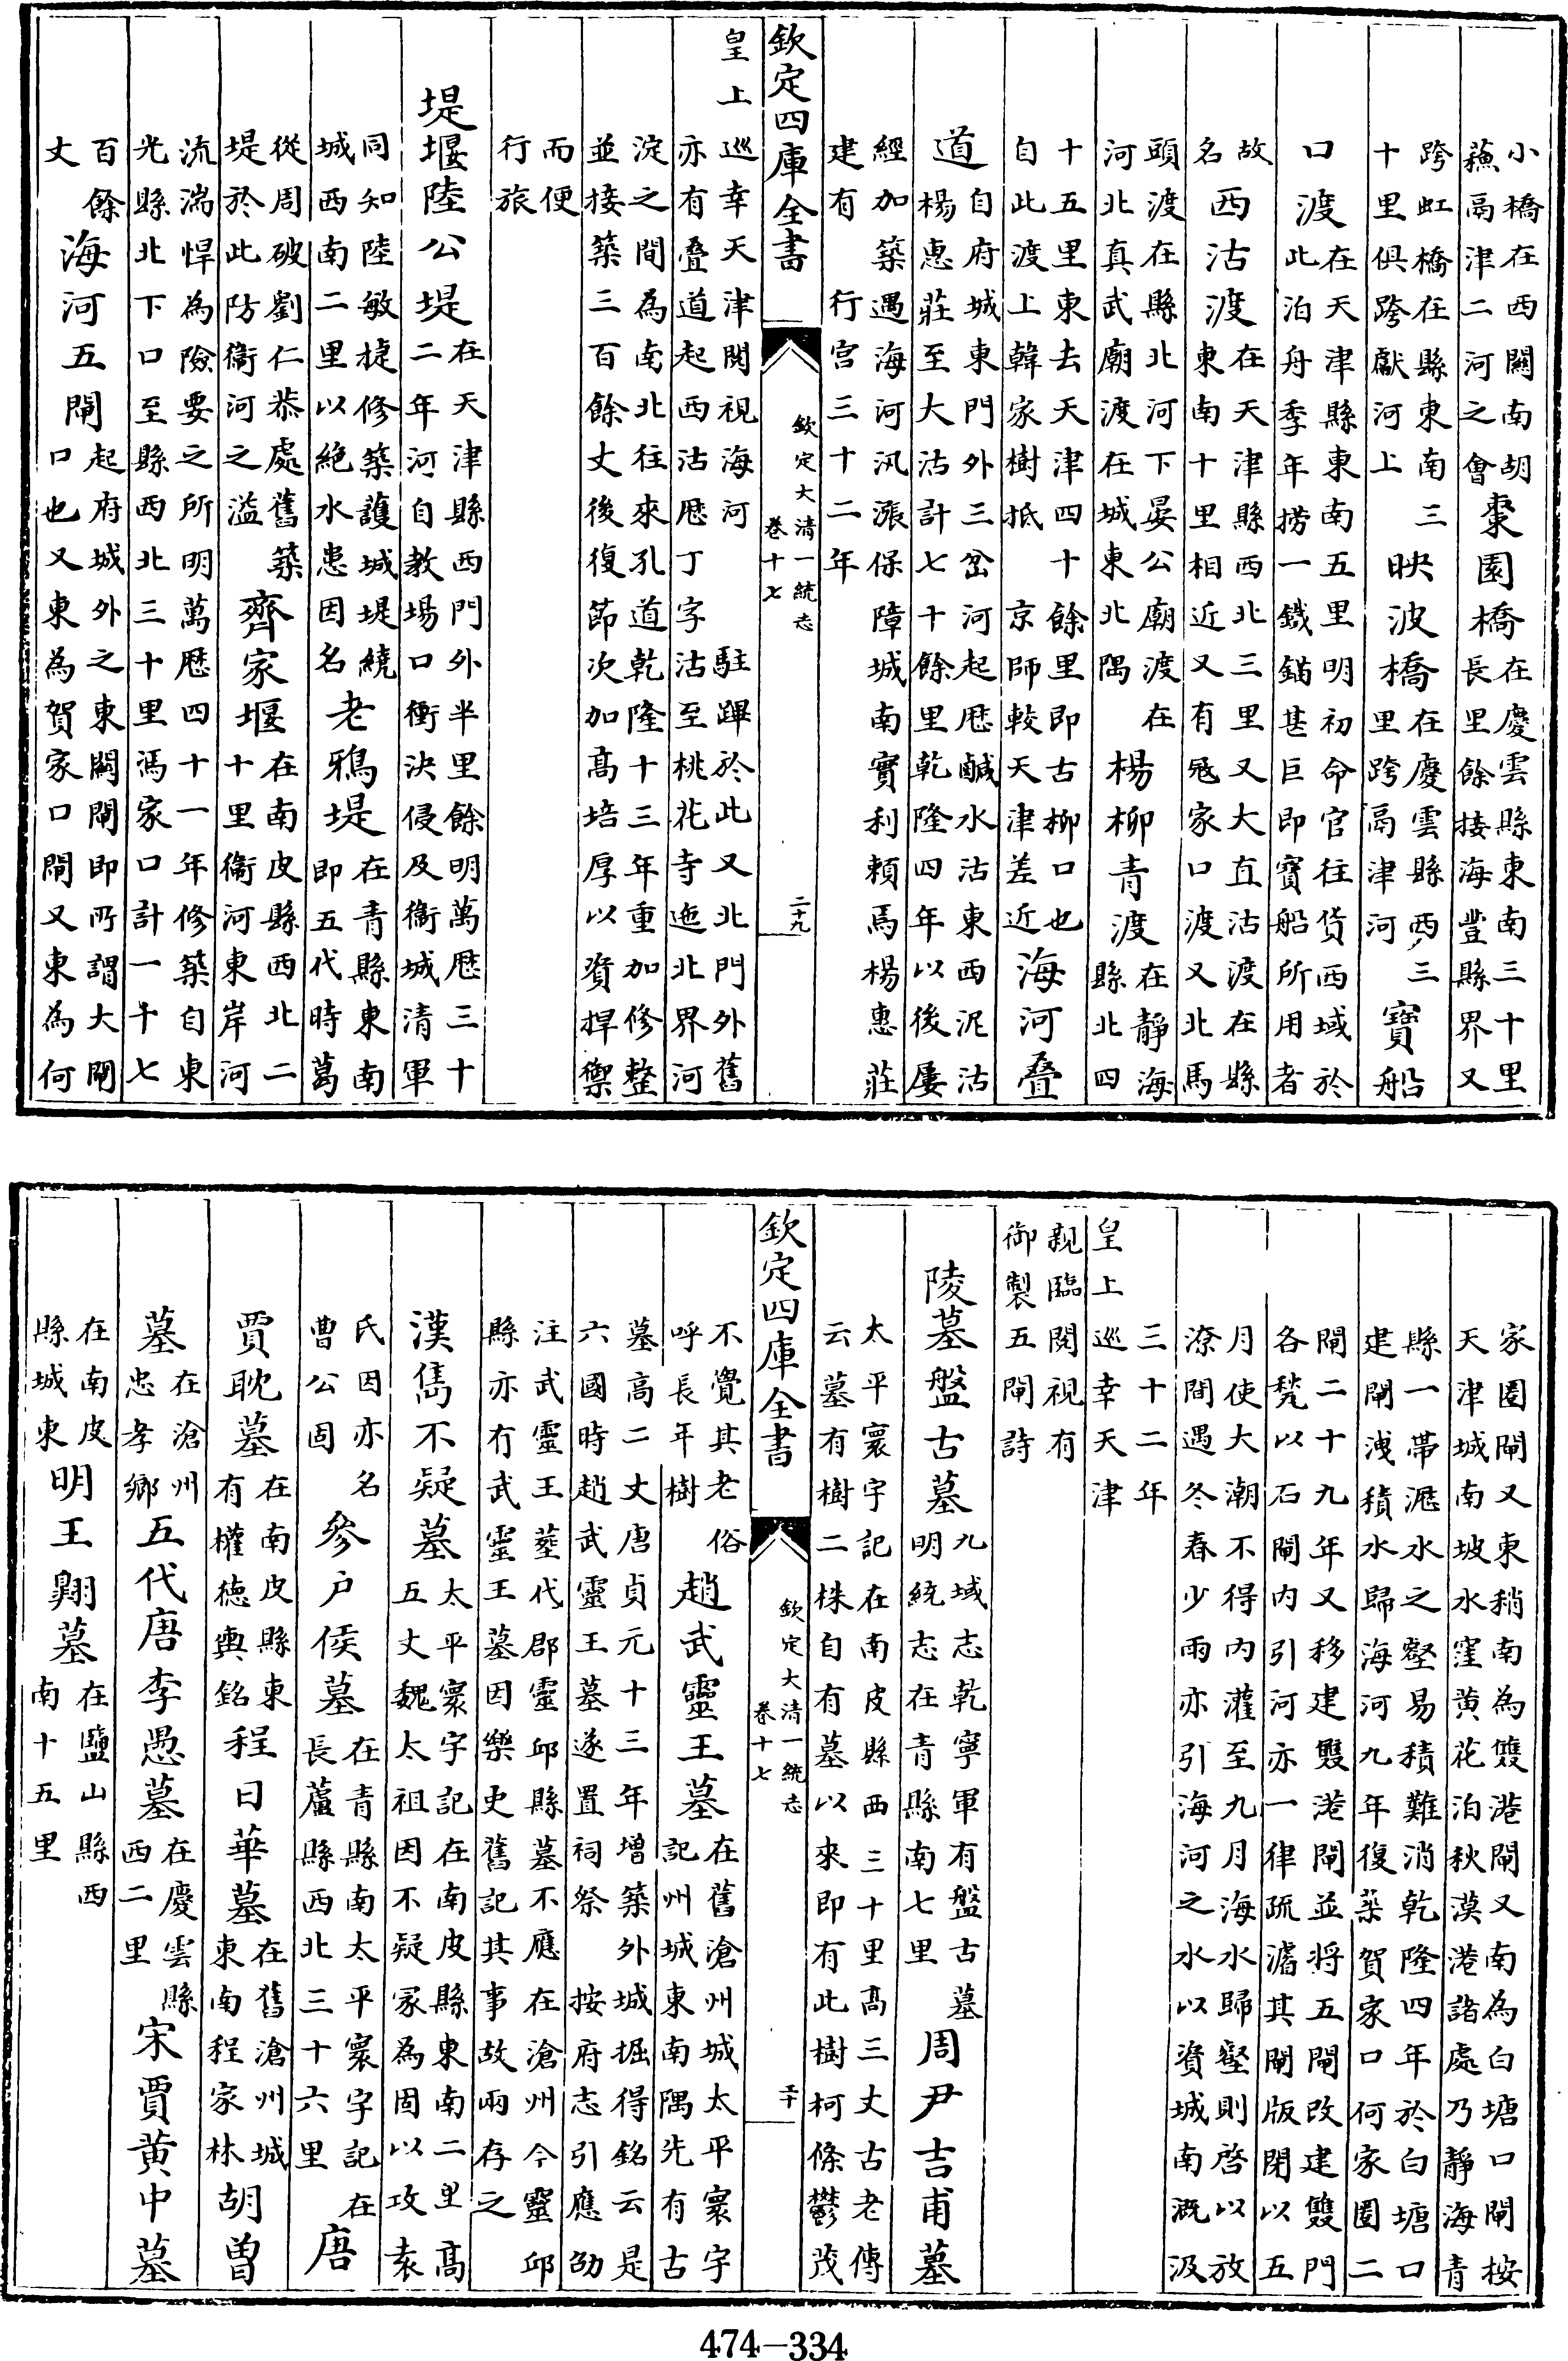 小橋在西關南胡蘓鬲津二河之會棗園橋在慶雲縣東南三十里長里餘接海豐縣界又
跨虹橋在縣東南三十里俱跨獻河上映波橋在慶雲縣西三里跨鬲津河寶船
口渡在天津縣東南五里明初命官往貨西域於此泊舟季年撈一鐵錨甚巨即寶船所用者
故名西沽渡在天津縣西北三里又大直沽渡在縣東南十里相近又有冦家口渡又北馬
頭渡在縣北河下晏公廟渡在河北真武廟渡在城東北隅楊柳青渡在靜海縣北四
十五里東去天津四十餘里即古柳口也自此渡上韓家樹抵京師較天津差近海河疊
道自府城東門外三岔河起歷鹹水沽東西泥沽楊惠莊至大沽計七十餘里乾隆四年以後屢
經加築遇海河汛漲保障城南實利賴焉楊惠莊建有行宮三十二年
欽定四庫全書
欽定大清一統志
卷十七
二十九
皇上巡幸天津閱視海河駐蹕於此又北門外舊亦有疊道起西沽歷丁字沽至桃花寺迤北界河
淀之間為南北往來孔道乾隆十三年重加修整並接築三百餘丈後復節次加高培厚以資捍禦
而便行旅
堤堰陸公堤在天津縣西門外半里餘明萬歷三十二年河自教場口衝決侵及衛城清軍
同知陸敏捷修築護城堤繞城西南二里以絶水患因名老鴉堤在青縣東南即五代時葛
從周破劉仁恭處舊築堤於此防衛河之溢齊家堰在南皮縣西北二十里衛河東岸河
流湍悍為險要之所明萬歷四十一年修築自東光縣北下口至縣西北三十里馮家口計一千七
百餘丈海河五閘起府城外之東關閘即所謂大閘口也又東為賀家口閘又東為何
家圈閘又東稍南為雙港閘又南為白塘口閘按天津城南坡水窪黄花泊秋漠港諸處乃靜海青
縣一帶瀝水之壑易積難消乾隆四年於白塘口建閘洩積水歸海河九年復築賀家口何家圈二
閘二十九年又移建雙港閘並將五閘改建雙門各甃以石閘内引河亦一律疏濬其閘版閉以五
月使大潮不得内灌至九月海水歸壑則啓以放潦間遇冬春少雨亦引海河之水以資城南溉汲
三十二年
皇上巡幸天津
親臨閱視有
御製五閘詩
陵墓盤古墓九域志乾寧軍有盤古墓明統志在青縣南七里周尹吉甫墓
太平寰宇記在南皮縣西三十里高三丈古老傳云墓有樹二株自有墓以來即有此樹柯條鬱茂
欽定四庫全書
欽定大清一統志
卷十七
三十
不覺其老俗呼長年樹趙武靈王墓在舊滄州城太平寰宇記州城東南隅先有古
墓高二丈唐貞元十三年增築外城掘得銘云是六國時趙武靈王墓遂置祠祭按府志引應劭
注武靈王葬代郡靈邱縣墓不應在滄州今靈邱縣亦有武靈王墓因樂史舊記其事故兩存之
漢雋不疑墓太平寰宇記在南皮縣東南二里高五丈魏太祖因不疑冢為固以攻袁
氏因亦名曹公固參户侯墓在青縣南太平寰宇記在長蘆縣西北三十六里唐
賈耽墓在南皮縣東有權德輿銘程日華墓在舊滄州城東南程家林胡曽
墓在滄州忠孝鄉五代唐李愚墓在慶雲縣西二里宋賈黄中墓
在南皮縣城東明王翺墓在鹽山縣西南十五里
474-334